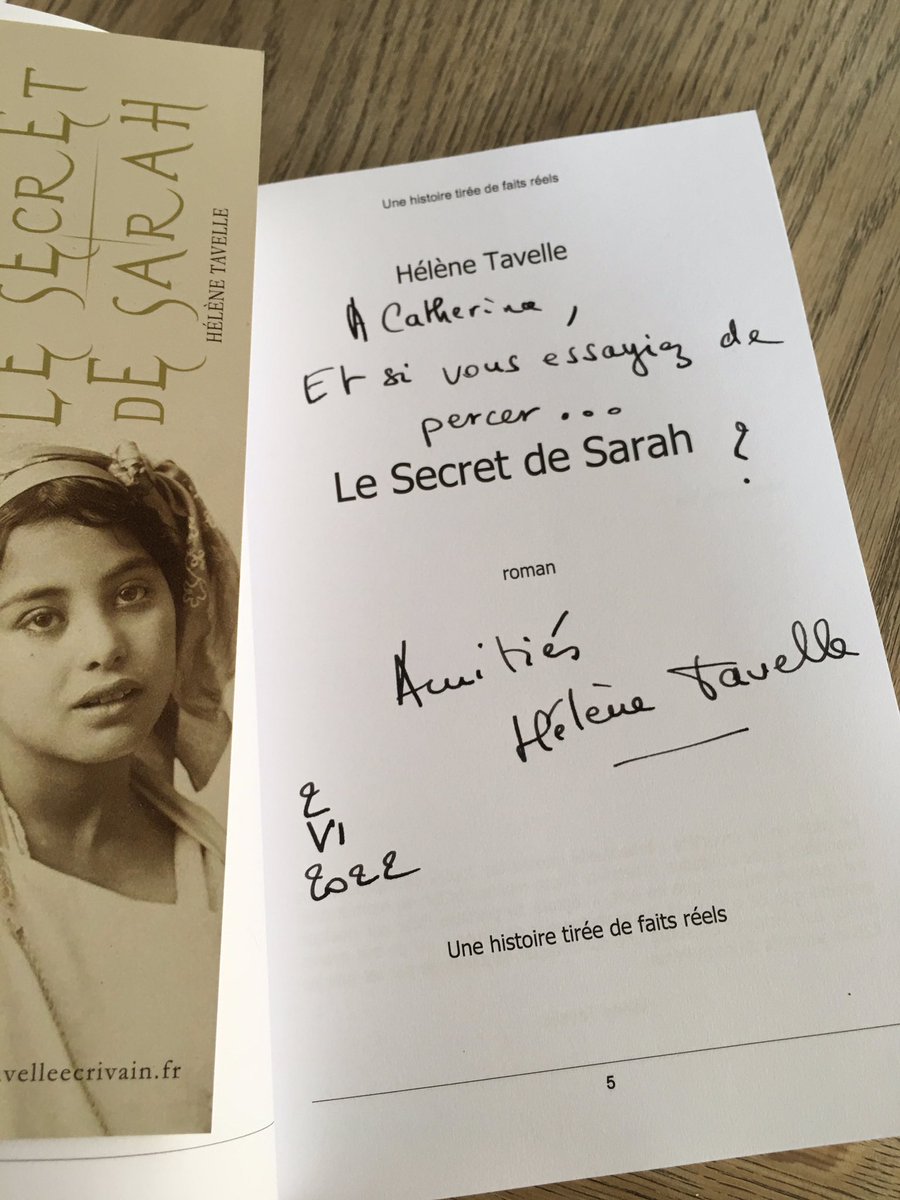 LE SECRET
DE SARAH
HÉLÈNE TAVELLE
velleecrivain.fr
Une histoire tirée de faits réels
Hélène Tavelle
A Catherine,
Et si vous essayiez de
percer...
Le Secret de Sarah ?
roman
Amitiés
Hélène Tavelle
2
VI
2022
Une histoire tirée de faits réels
5